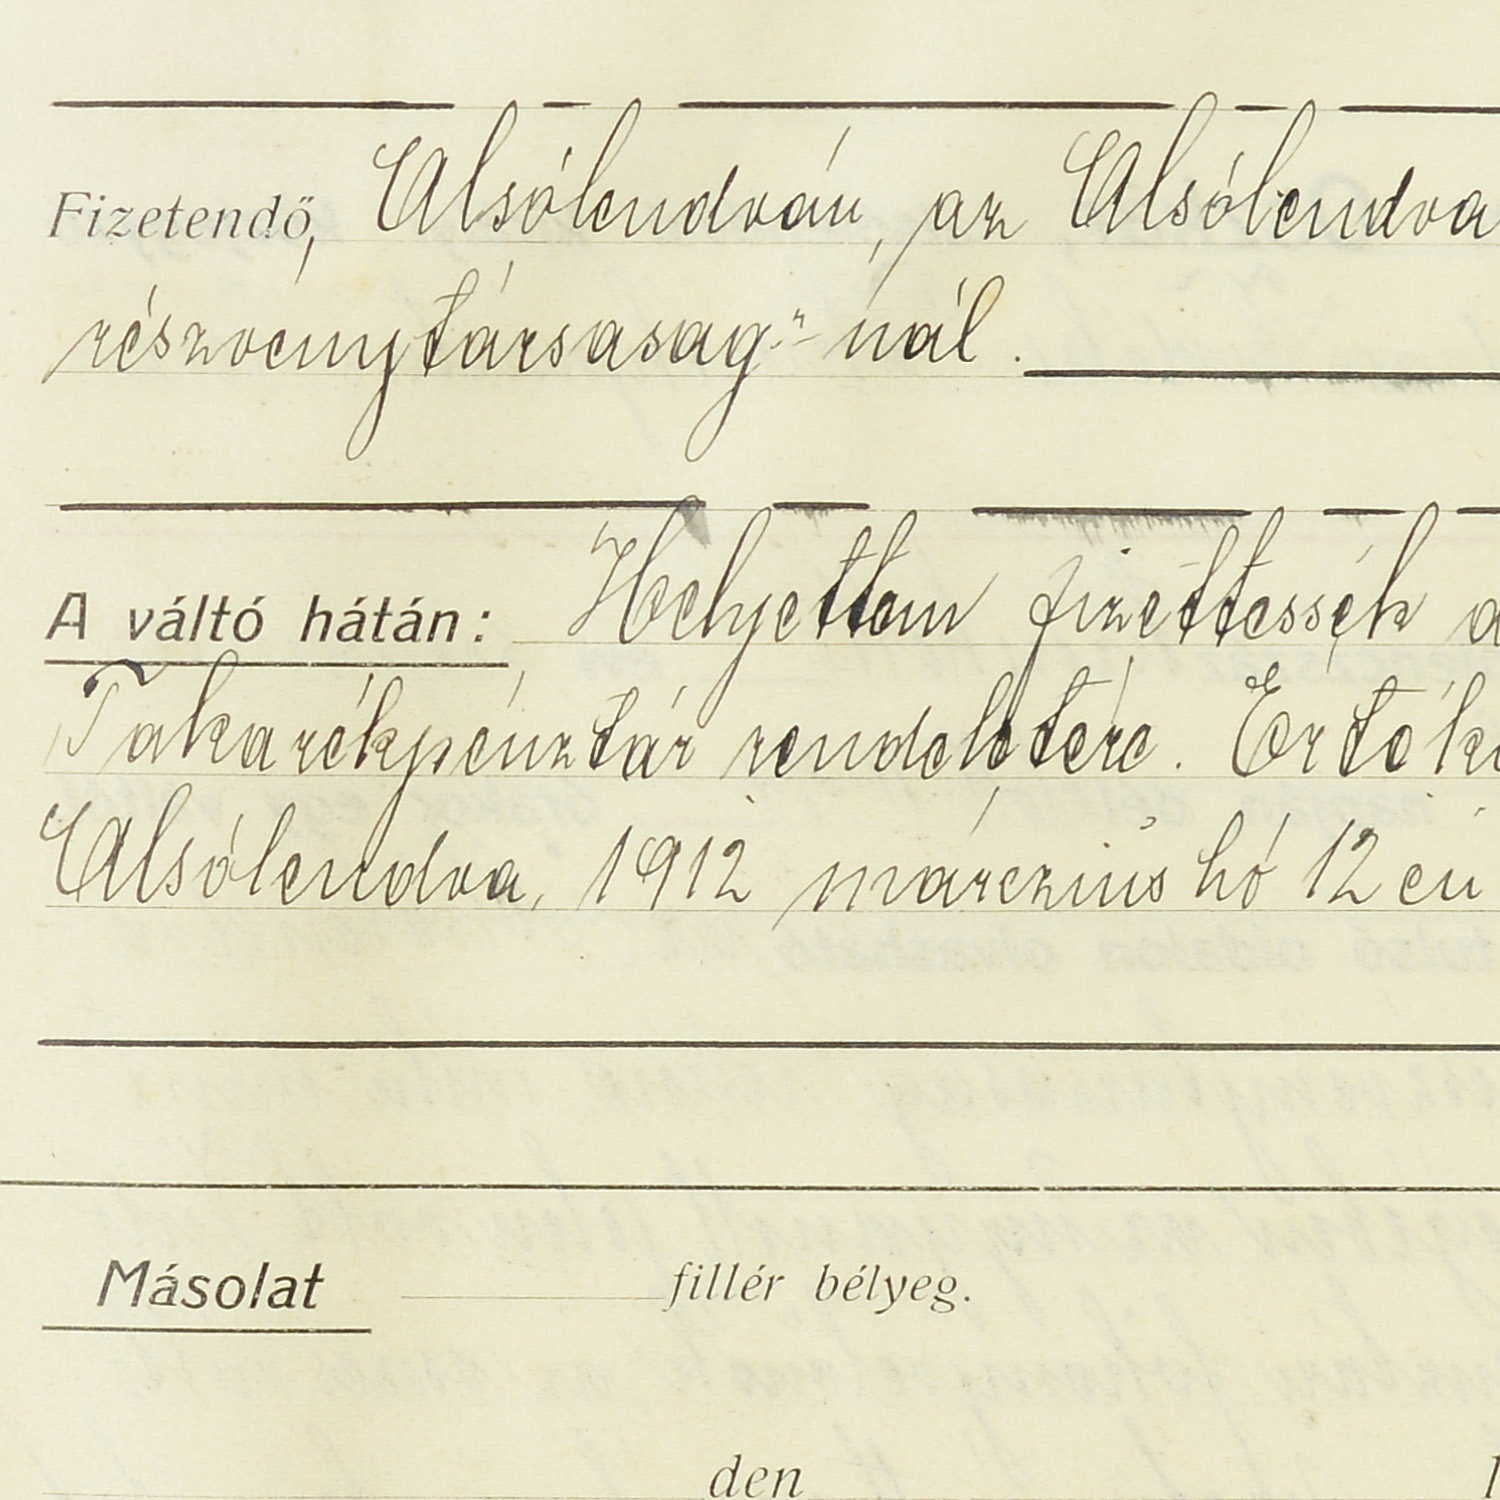 Fizetendő, Alsólendván, az Alsólendva
részvénytársaság"-nál.
A váltó hátán: Helyettem fizettessék a
Takarékpénztár rendeletére. Érték
Alsólendva, 1912 márczius hó 12 én
Másolat fillér bélyeg.
den 1